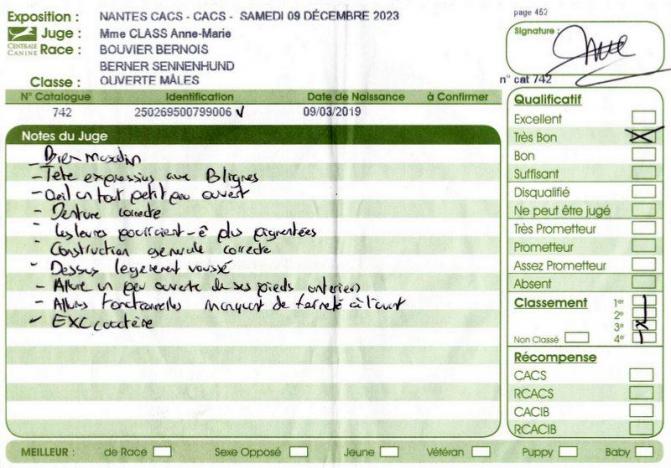 Exposition : NANTES CACS - CACS - SAMEDI 09 DÉCEMBRE 2023
page 452
CENTRALE CANINE
Juge : Mme CLASS Anne-Marie
Signature :
Race : BOUVIER BERNOIS
BERNER SENNENHUND
Classe : OUVERTE MÂLES
n° cat 742
N° Catalogue Identification Date de Naissance à Confirmer
742 250269500799006 09/03/2019
Notes du Juge
- Bien masculin
- Tête expressive aux B lignes
- Oeil un tout petit peu ouvert
- Denture correcte
- Les lèvres pourraient-ê plus pigmentées
- Construction générale correcte
- Dessus légèrement voussé
- Allure un peu ouverte de ses pieds antérieurs
- Allures fonctionnelles manquent de fermeté à l'avant
- EXC caractère
Qualificatif
Excellent
Très Bon
Bon
Suffisant
Disqualifié
Ne peut être jugé
Très Prometteur
Prometteur
Assez Prometteur
Absent
Classement 1er
2e
3e
Non Classé 4e
Récompense
CACS
RCACS
CACIB
RCACIB
MEILLEUR : de Race Sexe Opposé Jeune Vétéran Puppy Baby